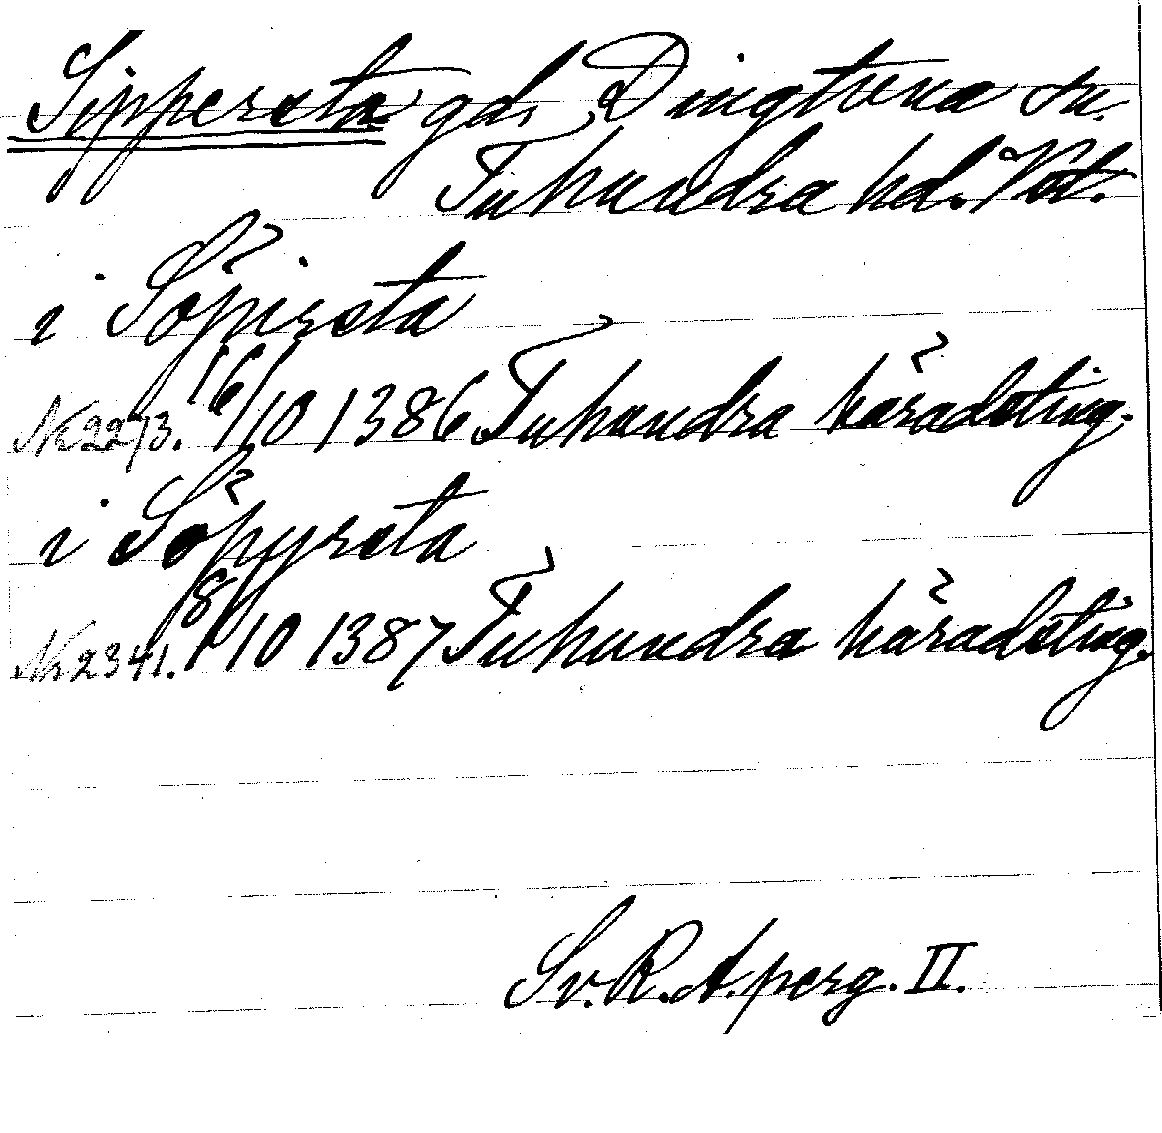 Sippersta gd, Dingtuna sn.
Tuhundra hd. Vstl.
i Söpirsta
Nr 2273. 16/10 1386 Tuhundra häradsting.
i Söpyrsta
Nr 2341. 8/10 1387 Tuhundra häradsting.
Sv. R. A. perg. II.